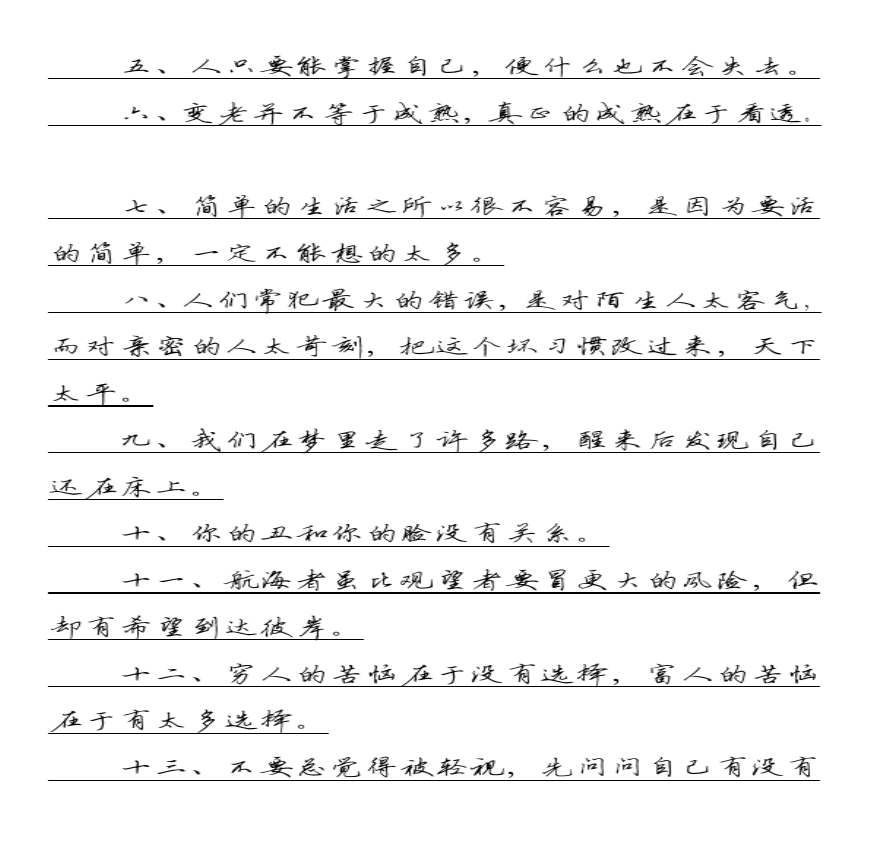 五、人只要能掌握自己，便什么也不会失去。
六、变老并不等于成熟，真正的成熟在于看透。
七、简单的生活之所以很不容易，是因为要活
的简单，一定不能想的太多。
八、人们常犯最大的错误，是对陌生人太客气，
而对亲密的人太苛刻，把这个坏习惯改过来，天下
太平。
九、我们在梦里走了许多路，醒来后发现自己
还在床上。
十、你的丑和你的脸没有关系。
十一、航海者虽比观望者要冒更大的风险，但
却有希望到达彼岸。
十二、穷人的苦恼在于没有选择，富人的苦恼
在于有太多选择。
十三、不要总觉得被轻视，先问问自己有没有